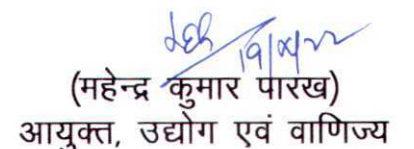 (महेन्द्र कुमार पारख)
आयुक्त, उद्योग एवं वाणिज्य